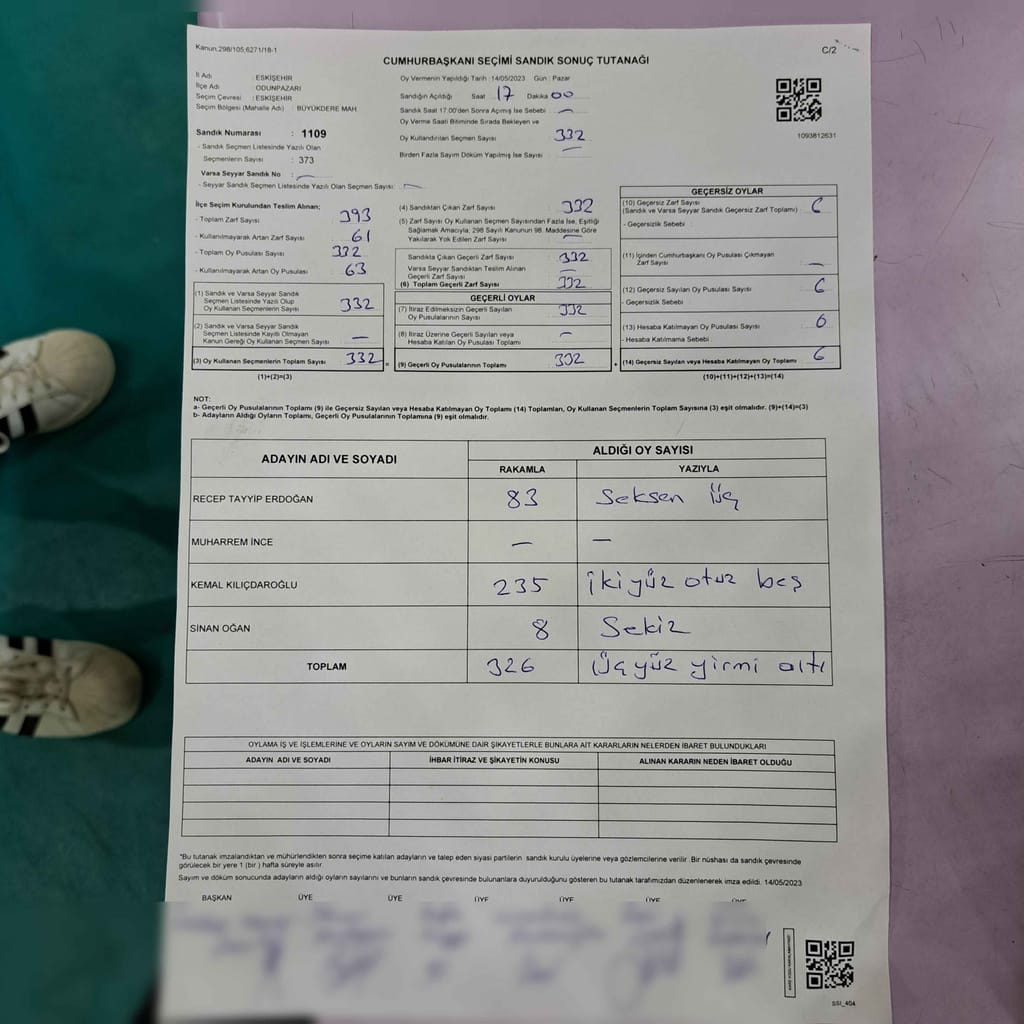 Kanun,298/105;6271/18-1
C/2
CUMHURBAŞKANI SEÇİMİ SANDIK SONUÇ TUTANAĞI
İl Adı : ESKİŞEHİR
İlçe Adı : ODUNPAZARI
Seçim Çevresi : ESKİŞEHİR
Seçim Bölgesi (Mahalle Adı) : BÜYÜKDERE MAH.
Sandık Numarası : 1109
- Sandık Seçmen Listesinde Yazılı Olan
Seçmenlerin Sayısı : 373
Varsa Seyyar Sandık No :
- Seyyar Sandık Seçmen Listesinde Yazılı Olan Seçmen Sayısı :
Oy Vermenin Yapıldığı Tarih : 14/05/2023 Gün : Pazar
Sandığın Açıldığı Saat 17 Dakika 00
Sandık Saat 17.00'den Sonra Açılmış İse Sebebi
Oy Verme Saati Bitiminde Sırada Bekleyen ve
Oy Kullandırılan Seçmen Sayısı 332
Birden Fazla Sayım Döküm Yapılmış İse Sayısı
1093812631
İlçe Seçim Kurulundan Teslim Alınan;
- Toplam Zarf Sayısı 393
- Kullanılmayarak Artan Zarf Sayısı 61
- Toplam Oy Pusulası Sayısı 332
- Kullanılmayarak Artan Oy Pusulası 63
(1) Sandık ve Varsa Seyyar Sandık
Seçmen Listesinde Yazılı Olup
Oy Kullanan Seçmenlerin Sayısı 332
(2) Sandık ve Varsa Seyyar Sandık
Seçmen Listesinde Kayıtlı Olmayan
Kanun Gereği Oy Kullanan Seçmen Sayısı —
(3) Oy Kullanan Seçmenlerin Toplam Sayısı 332 =
(1)+(2)=(3)
(4) Sandıktan Çıkan Zarf Sayısı 332
(5) Zarf Sayısı Oy Kullanan Seçmen Sayısından Fazla İse, Eşitliği
Sağlamak Amacıyla, 298 Sayılı Kanunun 98. Maddesine Göre
Yakılarak Yok Edilen Zarf Sayısı —
Sandıkta Çıkan Geçerli Zarf Sayısı 332
Varsa Seyyar Sandıktan Teslim Alınan
Geçerli Zarf Sayısı —
(6) Toplam Geçerli Zarf Sayısı 332
GEÇERLİ OYLAR
(7) İtiraz Edilmeksizin Geçerli Sayılan
Oy Pusulalarının Sayısı 332
(8) İtiraz Üzerine Geçerli Sayılan veya
Hesaba Katılan Oy Pusulası Toplamı —
(9) Geçerli Oy Pusulalarının Toplamı 332 +
GEÇERSİZ OYLAR
(10) Geçersiz Zarf Sayısı
(Sandık ve Varsa Seyyar Sandık Geçersiz Zarf Toplamı) 6
- Geçersizlik Sebebi :
(11) İçinden Cumhurbaşkanı Oy Pusulası Çıkmayan
Zarf Sayısı —
(12) Geçersiz Sayılan Oy Pusulası Sayısı 6
- Geçersizlik Sebebi :
(13) Hesaba Katılmayan Oy Pusulası Sayısı 6
- Hesaba Katılmama Sebebi :
(14) Geçersiz Sayılan veya Hesaba Katılmayan Oy Toplamı 6
(10)+(11)+(12)+(13)=(14)
NOT:
a- Geçerli Oy Pusulalarının Toplamı (9) ile Geçersiz Sayılan veya Hesaba Katılmayan Oy Toplamı (14) Toplamları, Oy Kullanan Seçmenlerin Toplam Sayısına (3) eşit olmalıdır. (9)+(14)=(3)
b- Adayların Aldığı Oyların Toplamı, Geçerli Oy Pusulalarının Toplamına (9) eşit olmalıdır.
ADAYIN ADI VE SOYADI ALDIĞI OY SAYISI
RAKAMLA YAZIYLA
RECEP TAYYİP ERDOĞAN 83 Seksen üç
MUHARREM İNCE — —
KEMAL KILIÇDAROĞLU 235 İkiyüz otuz beş
SİNAN OĞAN 8 Sekiz
TOPLAM 326 Üçyüz yirmi altı
OYLAMA İŞ VE İŞLEMLERİNE VE OYLARIN SAYIM VE DÖKÜMÜNE DAİR ŞİKAYETLERLE BUNLARA AİT KARARLARIN NELERDEN İBARET BULUNDUKLARI
ADAYIN ADI VE SOYADI İHBAR İTİRAZ VE ŞİKAYETİN KONUSU ALINAN KARARIN NEDEN İBARET OLDUĞU
"Bu tutanak imzalandıktan ve mühürlendikten sonra seçime katılan adayların ve talep eden siyasi partilerin sandık kurulu üyelerine veya gözlemcilerine verilir. Bir nüshası da sandık çevresinde
görülecek bir yere 1 (bir ) hafta süreyle asılır.
Sayım ve döküm sonucunda adayların aldığı oyların sayılarını ve bunların sandık çevresinde bulunanlara duyurulduğunu gösteren bu tutanak tarafımızdan düzenlenerek imza edildi. 14/05/2023
BAŞKAN ÜYE ÜYE ÜYE ÜYE ÜYE ÜYE
SSI_404